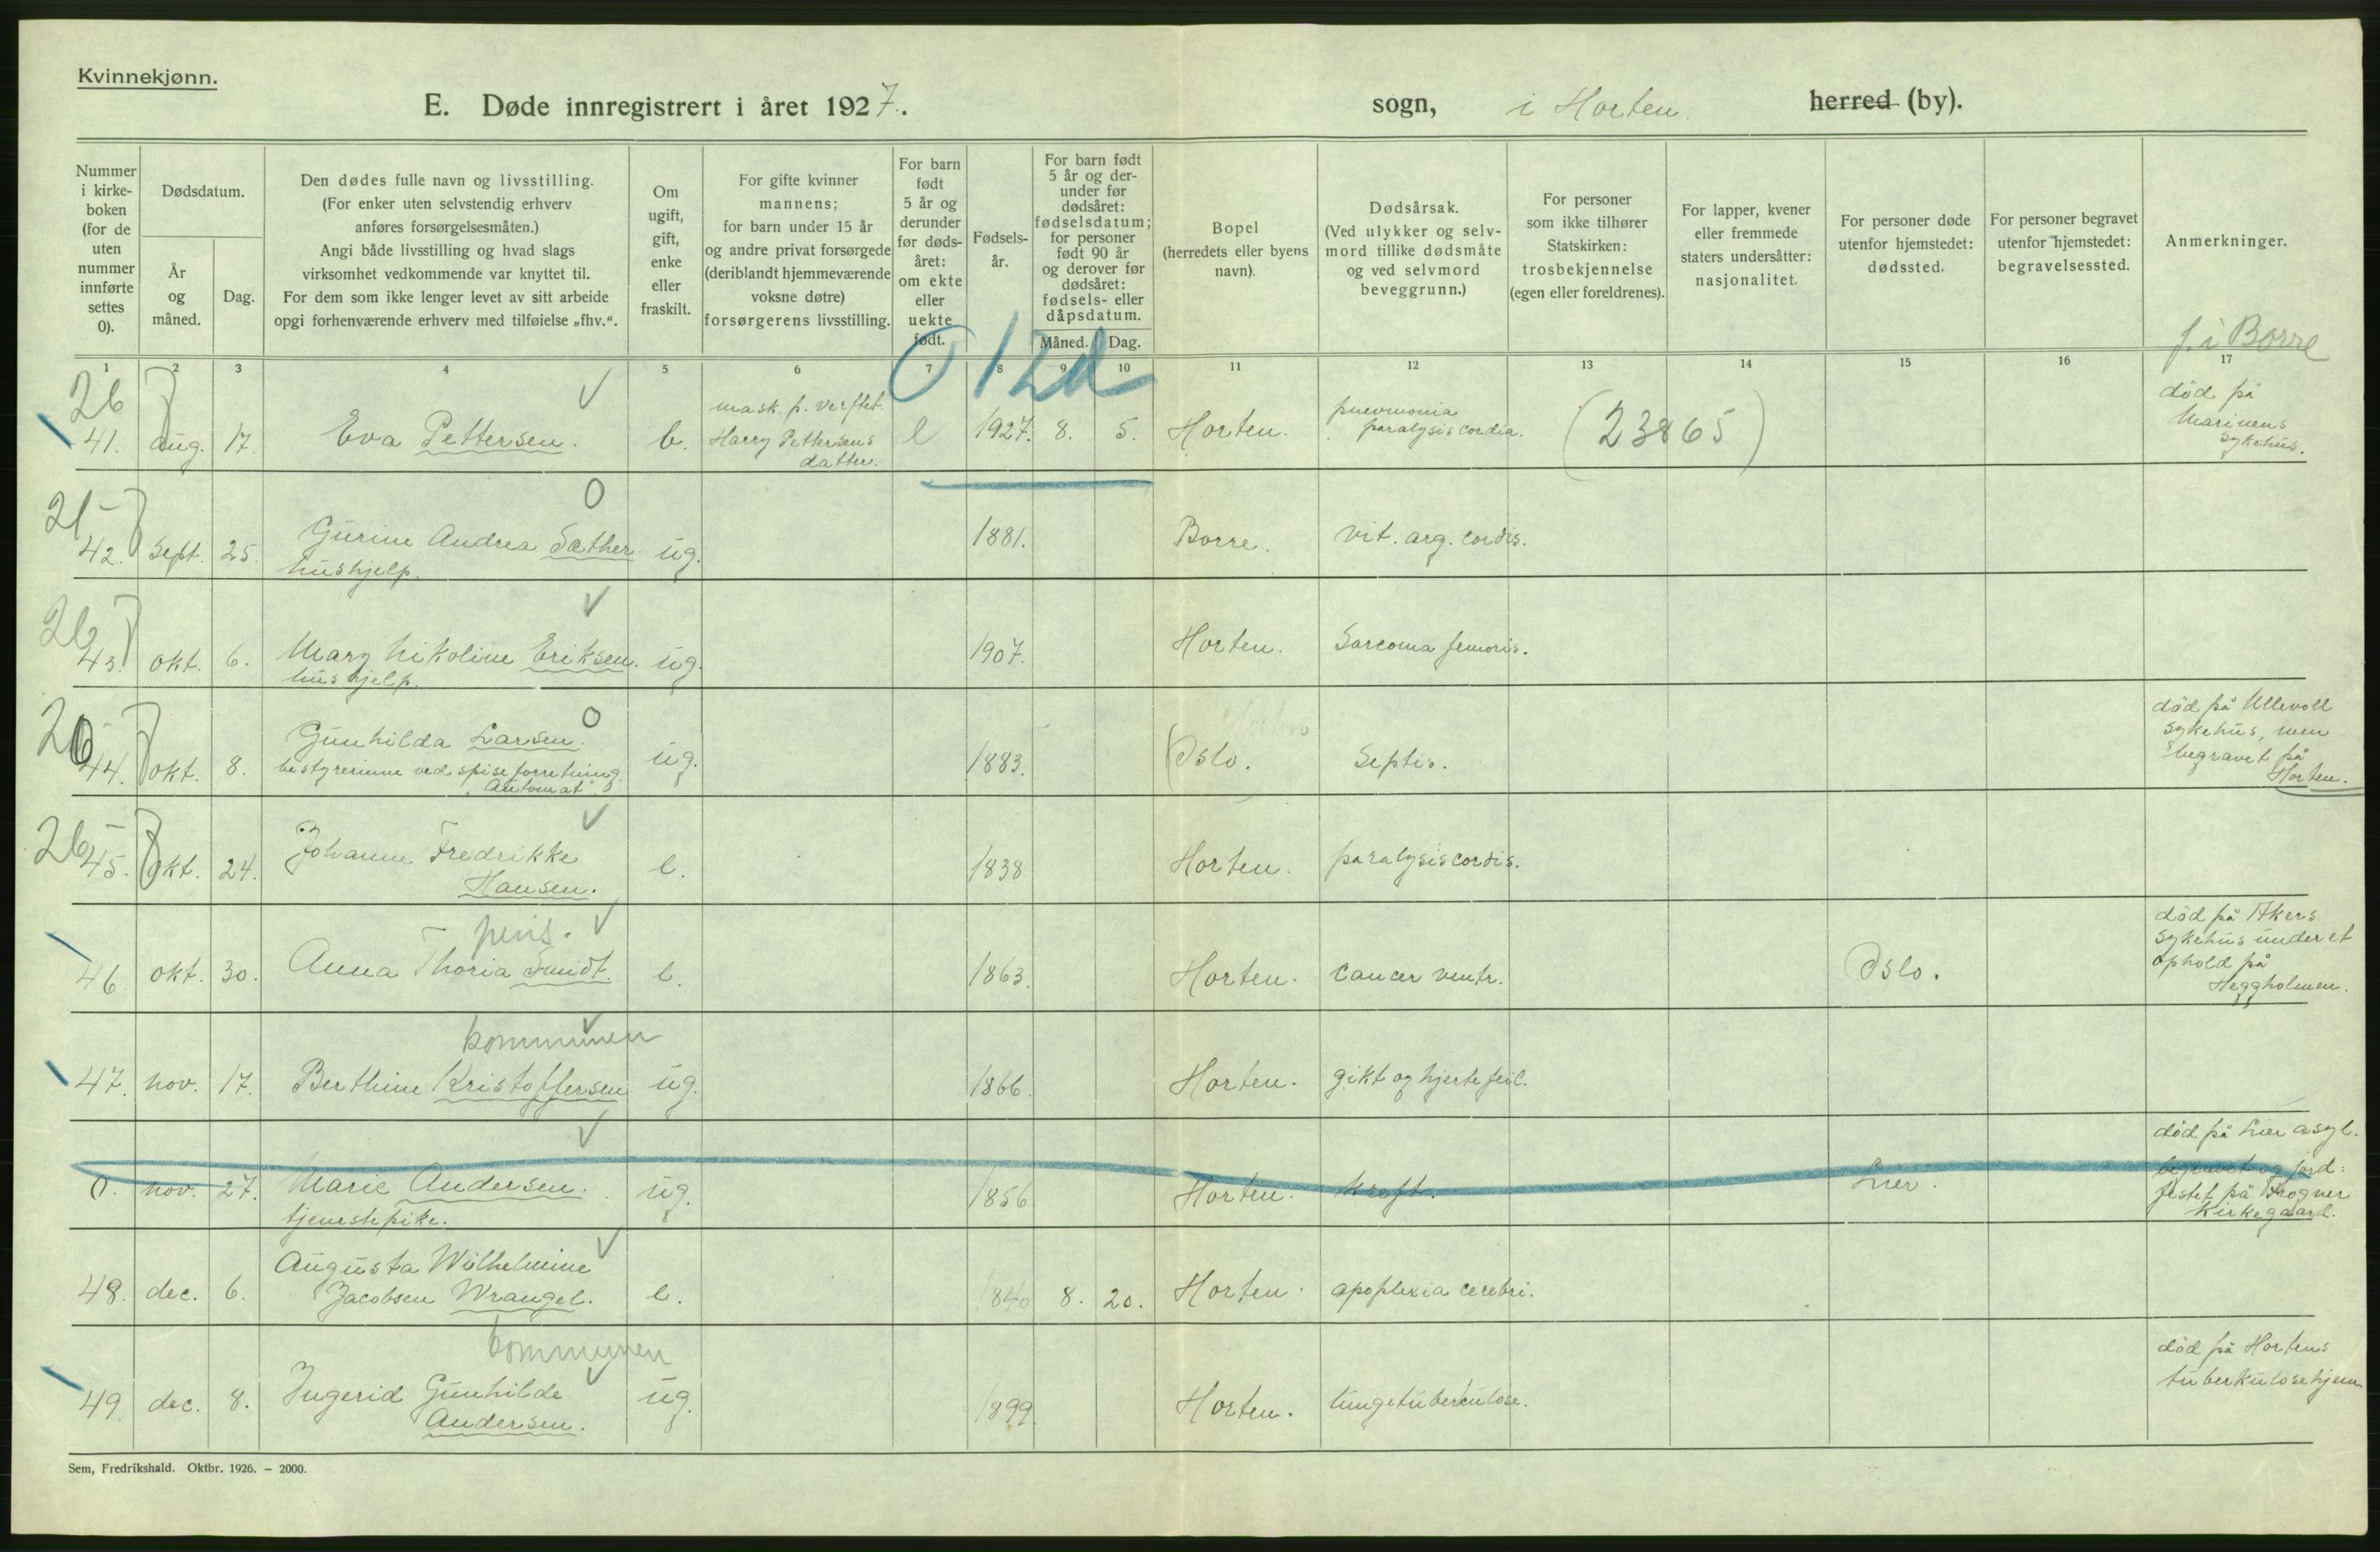 Kvinnekjønn.
E. Døde innregistrert i året 1927.
sogn, i Horten. herred (by).
Nummer i kirke-boken (for de uten nummer innførte settes 0).
Dødsdatum.
År og måned.
Dag.
Den dødes fulle navn og livsstilling.
(For enker uten selvstendig erhverv
anføres forsørgelsesmåten.)
Angi både livsstilling og hvad slags
virksomhet vedkommende var knyttet til.
For dem som ikke lenger levet av sitt arbeide
opgi forhenværende erhverv med tilføielse „fhv.“.
Om ugift, gift, enke eller fraskilt.
For gifte kvinner
mannens;
for barn under 15 år
og andre privat forsørgede
(deriblandt hjemmeværende
voksne døtre)
forsørgerens livsstilling.
For barn født 5 år og derunder før døds-året: om ekte eller uekte født.
Fødsels-år.
For barn født 5 år og der-under før dødsåret: fødselsdatum; for personer født 90 år og derover før dødsåret: fødsels- eller dåpsdatum.
Måned. Dag.
Bopel
(herredets eller byens
navn).
Dødsårsak.
(Ved ulykker og selv-
mord tillike dødsmåte
og ved selvmord
beveggrunn.)
For personer
som ikke tilhører
Statskirken:
trosbekjennelse
(egen eller foreldrenes).
For lapper, kvener
eller fremmede
staters undersåtter:
nasjonalitet.
For personer døde
utenfor hjemstedet:
dødssted.
For personer begravet
utenfor hjemstedet:
begravelsessted.
Anmerkninger.
f. i Borre
1 2 3 4 5 6 7 8 9 10 11 12 13 14 15 16 17
0 12d
26
41. aug. 17. Eva Pettersen. b. mask. p. verftet.
Harry Pettersens
datter.
e 1927. 8. 5. Horten. pneumonia
paralysis cordia.
(23865)
død på
Marinens
sykehus.
21
42. sept. 25. Gurine Andrea Sæther. ug. 1881. Borre. vit. arg. cordis.
hushjelp.
26
43. okt. 6. Mary Nikoline Eriksen. ug. 1907. Horten. Sarcoma femoris.
hushjelp.
26
44. okt. 8. Gunhilda Larsen. ug. 1883. Oslo. Septis.
bestyrerinne ved spiseforretning
"Automat"
død på Ullevoll
sykehus, men
begravet på
Horten.
26
45. okt. 24. Johanne Fredrikke
Hansen.
e. 1838 Horten. paralysis cordis.
pens.
46. okt. 30. Anna Thoria Smidt. e. 1863. Horten. cancer ventr. Oslo.
død på Akers
sykehus under et
ophold på
Heggholmen.
kommunen
47. nov. 17. Berthine Kristoffersen ug. 1866. Horten. gikt og hjertefeil.
0. nov. 27. Marie Andersen. ug. 1856 Horten. kreft. Lier.
tjenestepike.
død på Lier asyl.
begravet og jord=
festet på Frogner
Kirkegaard.
48. dec. 6. Augusta Wilhelmine
Jacobsen Wrangel.
e. 1840 8. 20. Horten. apoplexia cerebri.
kommunen
49. dec. 8. Ingerid Gunhilde
Andersen.
ug. 1899. Horten. lungetuberculose.
død på Hortens
tuberkulosehjem
Sem, Fredrikshald. Oktbr. 1926. – 2000.